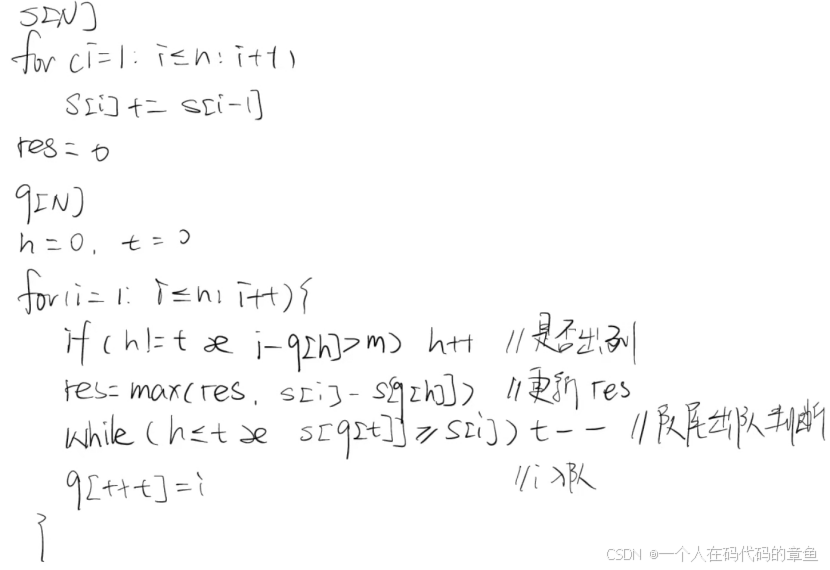 S[N]
for (i=1; i≤n; i++)
S[i] += s[i-1]
res = 0
q[N]
h=0, t=0
for(i=1; i≤n; i++){
if(h!=t && i-q[h]>m) h++ //是否出列
res=max(res, s[i]-s[q[h]]) //更新res
while(h≤t && s[q[t]]≥s[i]) t-- //队尾出队判断
q[++t]=i //i入队
}
CSDN @一个人在码代码的章鱼